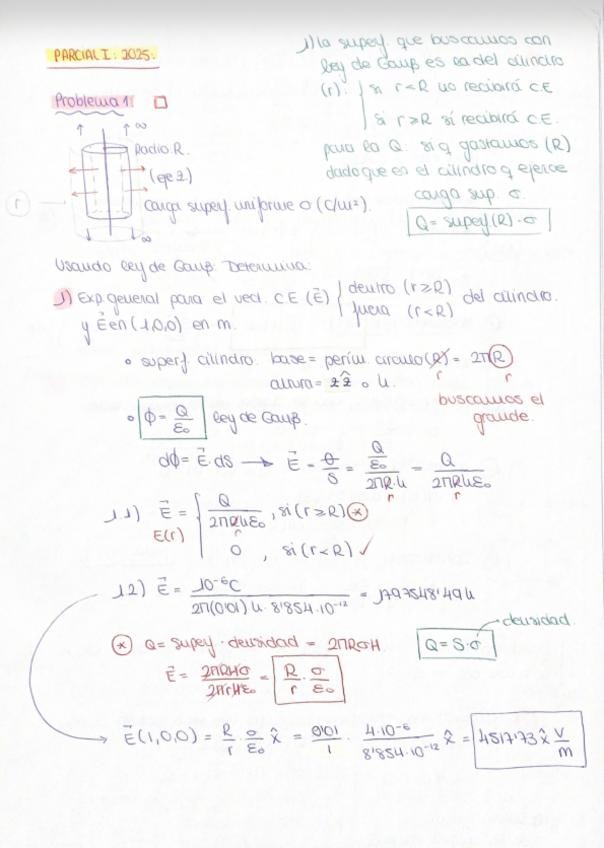 PARCIAL I: 2025:
Problema 1:
∞
∞
Radio R.
(eje z)
r
Carga superf. uniforme σ (C/m²).
∞
1) la superf. que buscamos con
ley de Gauß es la del cilindro
(r): si r<R no recibirá CE
si r≥R sí recibirá CE.
para la Q sí q gastamos (R)
dado que es el cilindro q ejerce
carga sup. σ.
Q = superf(R) · σ
Usando ley de Gauß. Determina:
1) Exp. general para el vect. CE (E⃗) { dentro (r≥R) del cilindro.
fuera (r<R)
y E⃗ en (1,0,0) en m.
∘ superf. cilindro. base = perím. círculo (R) = 2πR
r r
altura = zẑ o h.
buscamos el
grande.
∘ ϕ = Q/ε₀ ley de Gauß
dϕ = E⃗·dS → E⃗ = θ/S = (Q/ε₀)/(2πR·h) = Q/(2πRhε₀)
r r
1.1) E⃗ = { Q/(2πRhε₀), si (r≥R) *
r
E(r)
0 , si (r<R) ✓
1.2) E⃗ = 10⁻⁶C / (2π(0'01) h · 8'854·10⁻¹²) = 1797548'49h
* Q = superf · densidad = 2πRσH
Q = S·σ
densidad.
E⃗ = 2πRHσ/2πrHε₀ = R/r · σ/ε₀
E⃗(1,0,0) = R/r · σ/ε₀ x̂ = 0'01/1 · 4·10⁻⁶/8'854·10⁻¹² x̂ = 4517'73 x̂ V/m